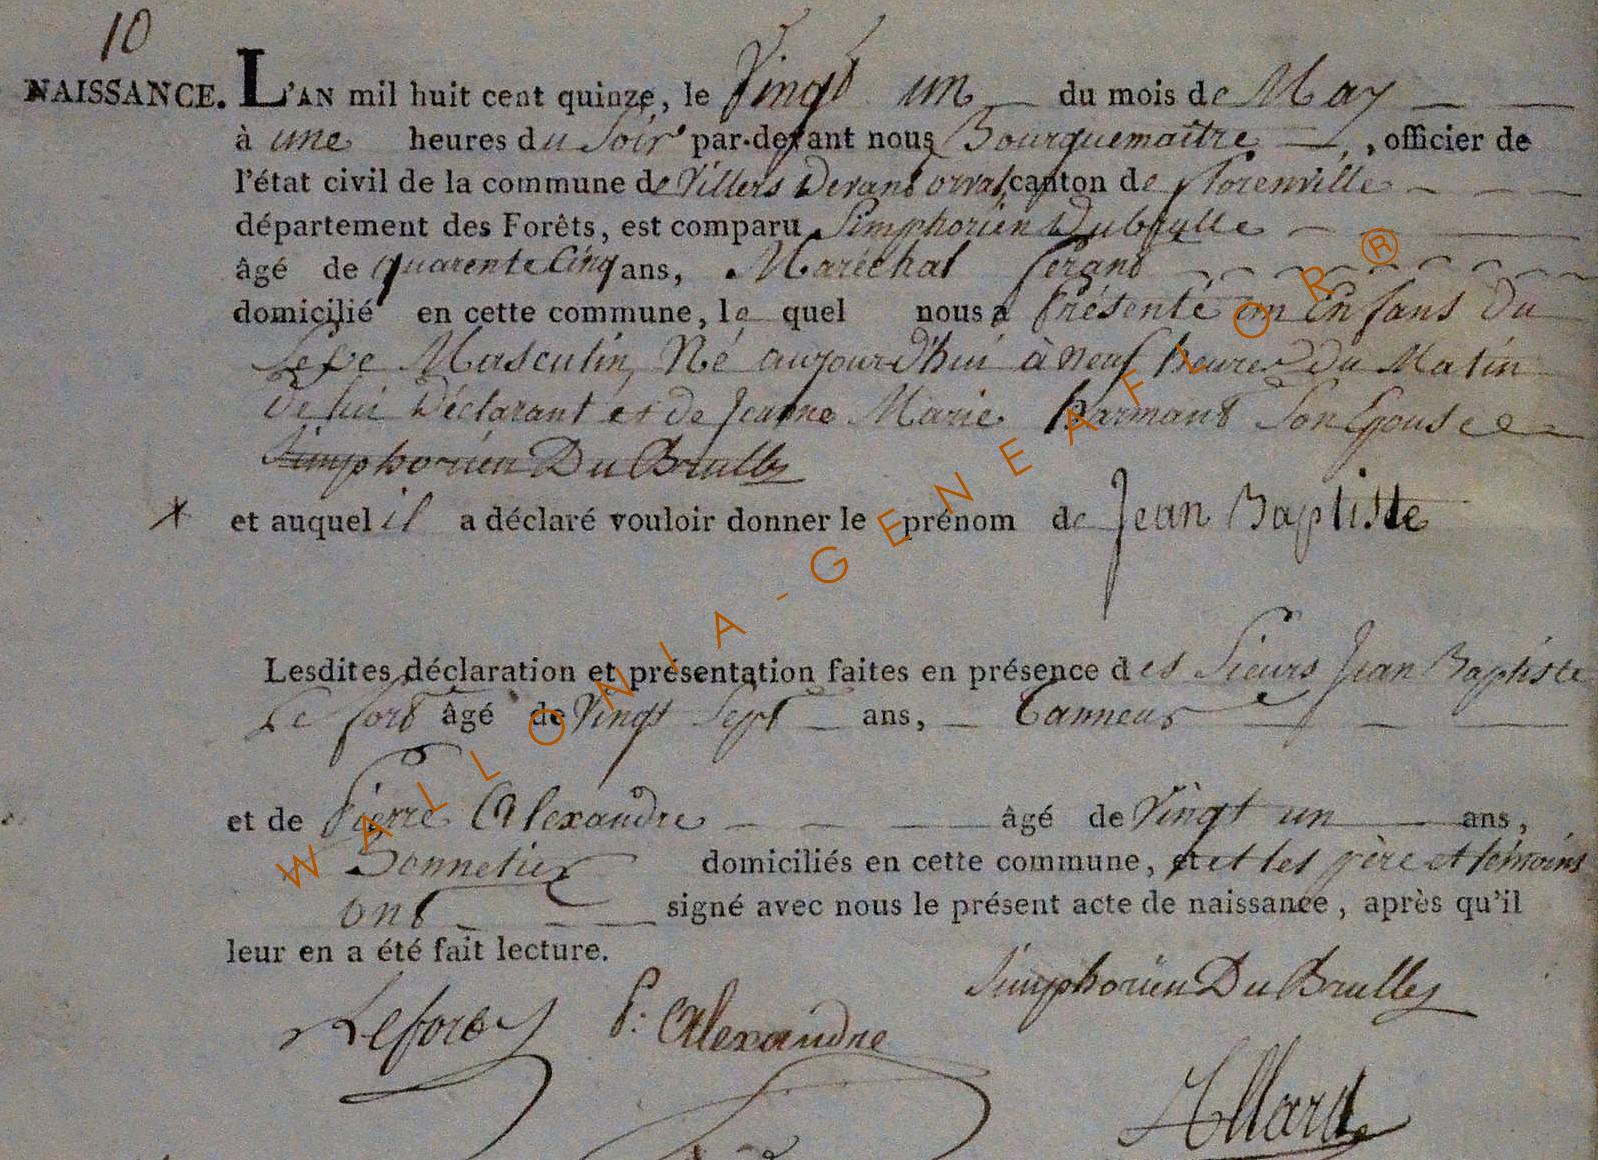 10
NAISSANCE. L'AN mil huit cent quinze, le Vingt un du mois de May
à une heures du Soir par-devant nous Bourguemaitre, officier de
l'état civil de la commune de Villers Devant orval, canton de florenville
département des Forêts, est comparu Simphorien Dubrulle
âgé de quarente Cinq ans, Maréchal ferant
domicilié en cette commune, le quel nous a présenté un Enfans Du
Sexe Masculin, Né aujourd'hui à neuf heures Du Matin
De lui Déclarant et de Jeanne Marie harmant Son Epouse
Simphorien Du Brulle
* et auquel il a déclaré vouloir donner le prénom de Jean Baptiste
Lesdites déclaration et présentation faites en présence des Sieurs Jean Baptiste
Le fort âgé de Vingt Sept ans, Tanneur
et de Pierre Alexandre âgé de Vingt un ans,
Bonnetier domiciliés en cette commune, et et les père et témoins
ont signé avec nous le présent acte de naissance, après qu'il
leur en a été fait lecture.
Simphorien Du Brulle
Lefort P: Alexandre
Allard
WALLONIA-GENEAFLOR®